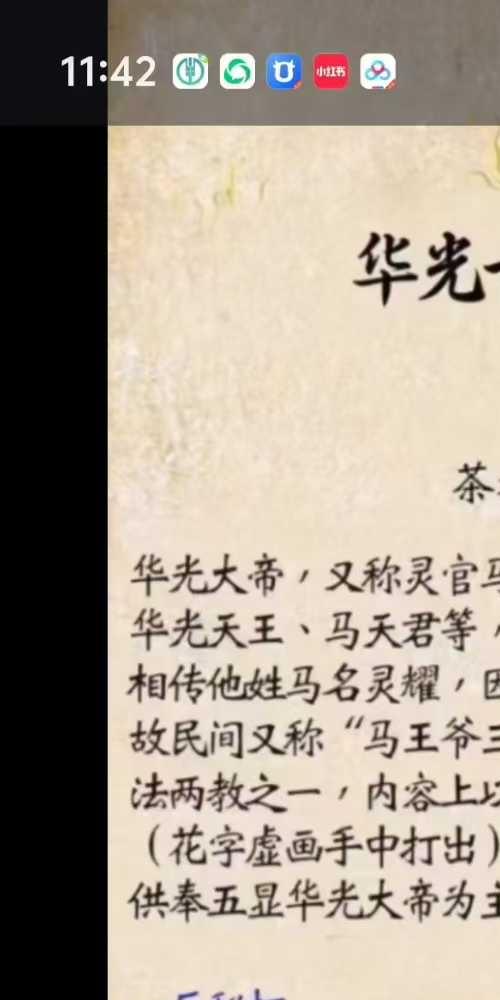 11:42 小红书
华光
茶
华光大帝，又称灵官马
华光天王、马天君等，
相传他姓马名灵耀，因
故民间又称“马王爷三
法两教之一，内容上以
（花字虚画手中打出）
供奉五显华光大帝为主